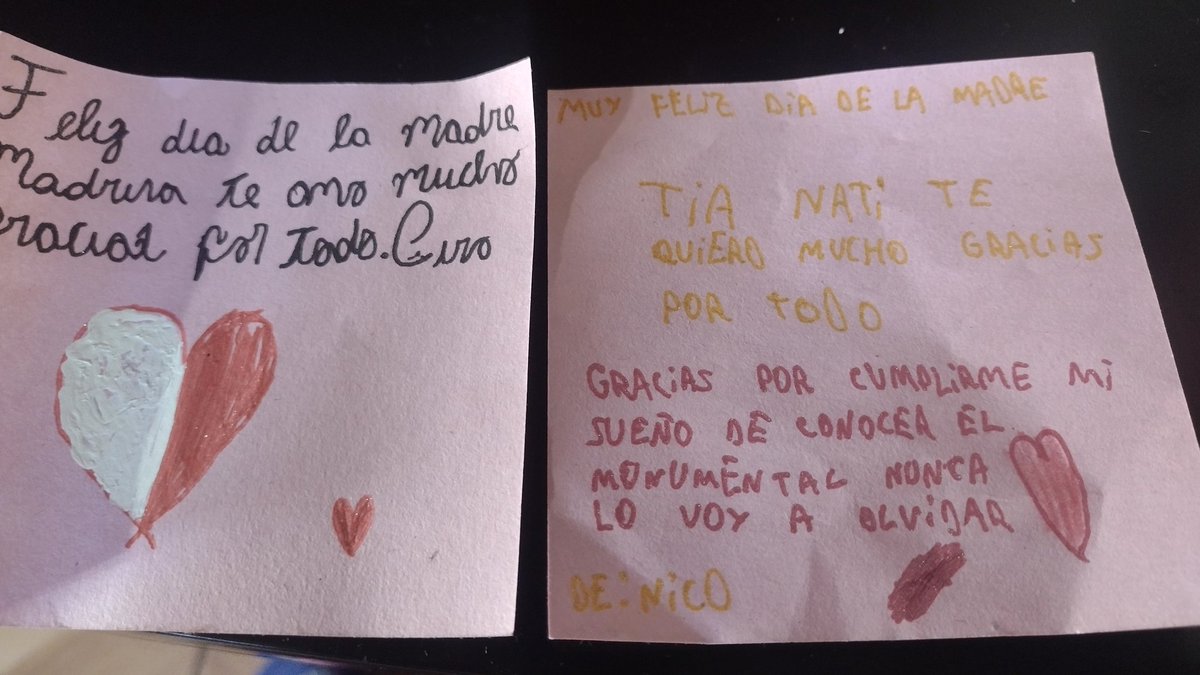 Feliz dia de la madre
Madrina te amo mucho
Gracias por todo. Ciro
MUY FELIZ DiA DE LA MADRE
TiA NATi TE
QUiERO MUCHO GRACiAS
POR TODO
GRACiAS POR CUMPLiRME Mi
SUEÑO DE CONOCER EL
MONUMENTAL NUNCA
LO VOY A OLViDAR
DE: NiCO